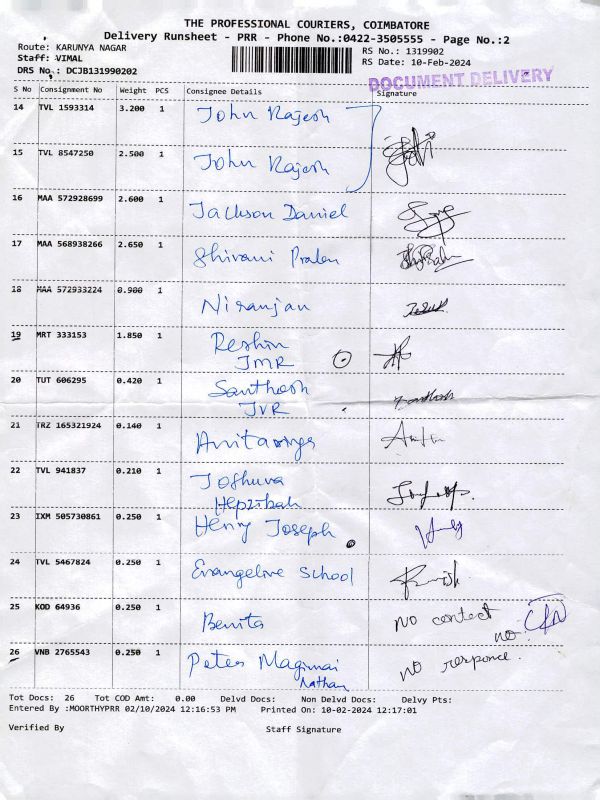 THE PROFESSIONAL COURIERS, COIMBATORE
Delivery Runsheet - PRR - Phone No.:0422-3505555 - Page No.:2
Route: KARUNYA NAGAR
RS No.: 1319902
Staff: VIMAL
RS Date: 10-Feb-2024
DRS No.: DCJB131990202
DOCUMENT DELIVERY
S No Consignment No Weight PCS Consignee Details Signature
14 TVL 1593314 3.200 1 John Rajesh
15 TVL 8547250 2.500 1 John Rajesh
16 MAA 572928699 2.600 1 Jackson Daniel
17 MAA 568938266 2.650 1 Shivani Pralen
18 MAA 572933224 0.900 1 Niranjan
19 MRT 333153 1.850 1 Reshin
JMR
20 TUT 606295 0.420 1 Santhosh
JVR
21 TRZ 165321924 0.140 1
22 TVL 941837 0.210 1 Joshuva
Hepzibah
23 IXM 505730861 0.250 1 Henry Joseph
24 TVL 5467824 0.250 1 Evangeline School
25 KOD 64936 0.250 1 Benita no contect
no.
26 VNB 2765543 0.250 1 Peter Magimai no responce.
Nathan
Tot Docs: 26 Tot COD Amt: 0.00 Delvd Docs: Non Delvd Docs: Delvy Pts:
Entered By :MOORTHYPRR 02/10/2024 12:16:53 PM Printed On: 10-02-2024 12:17:01
Verified By Staff Signature